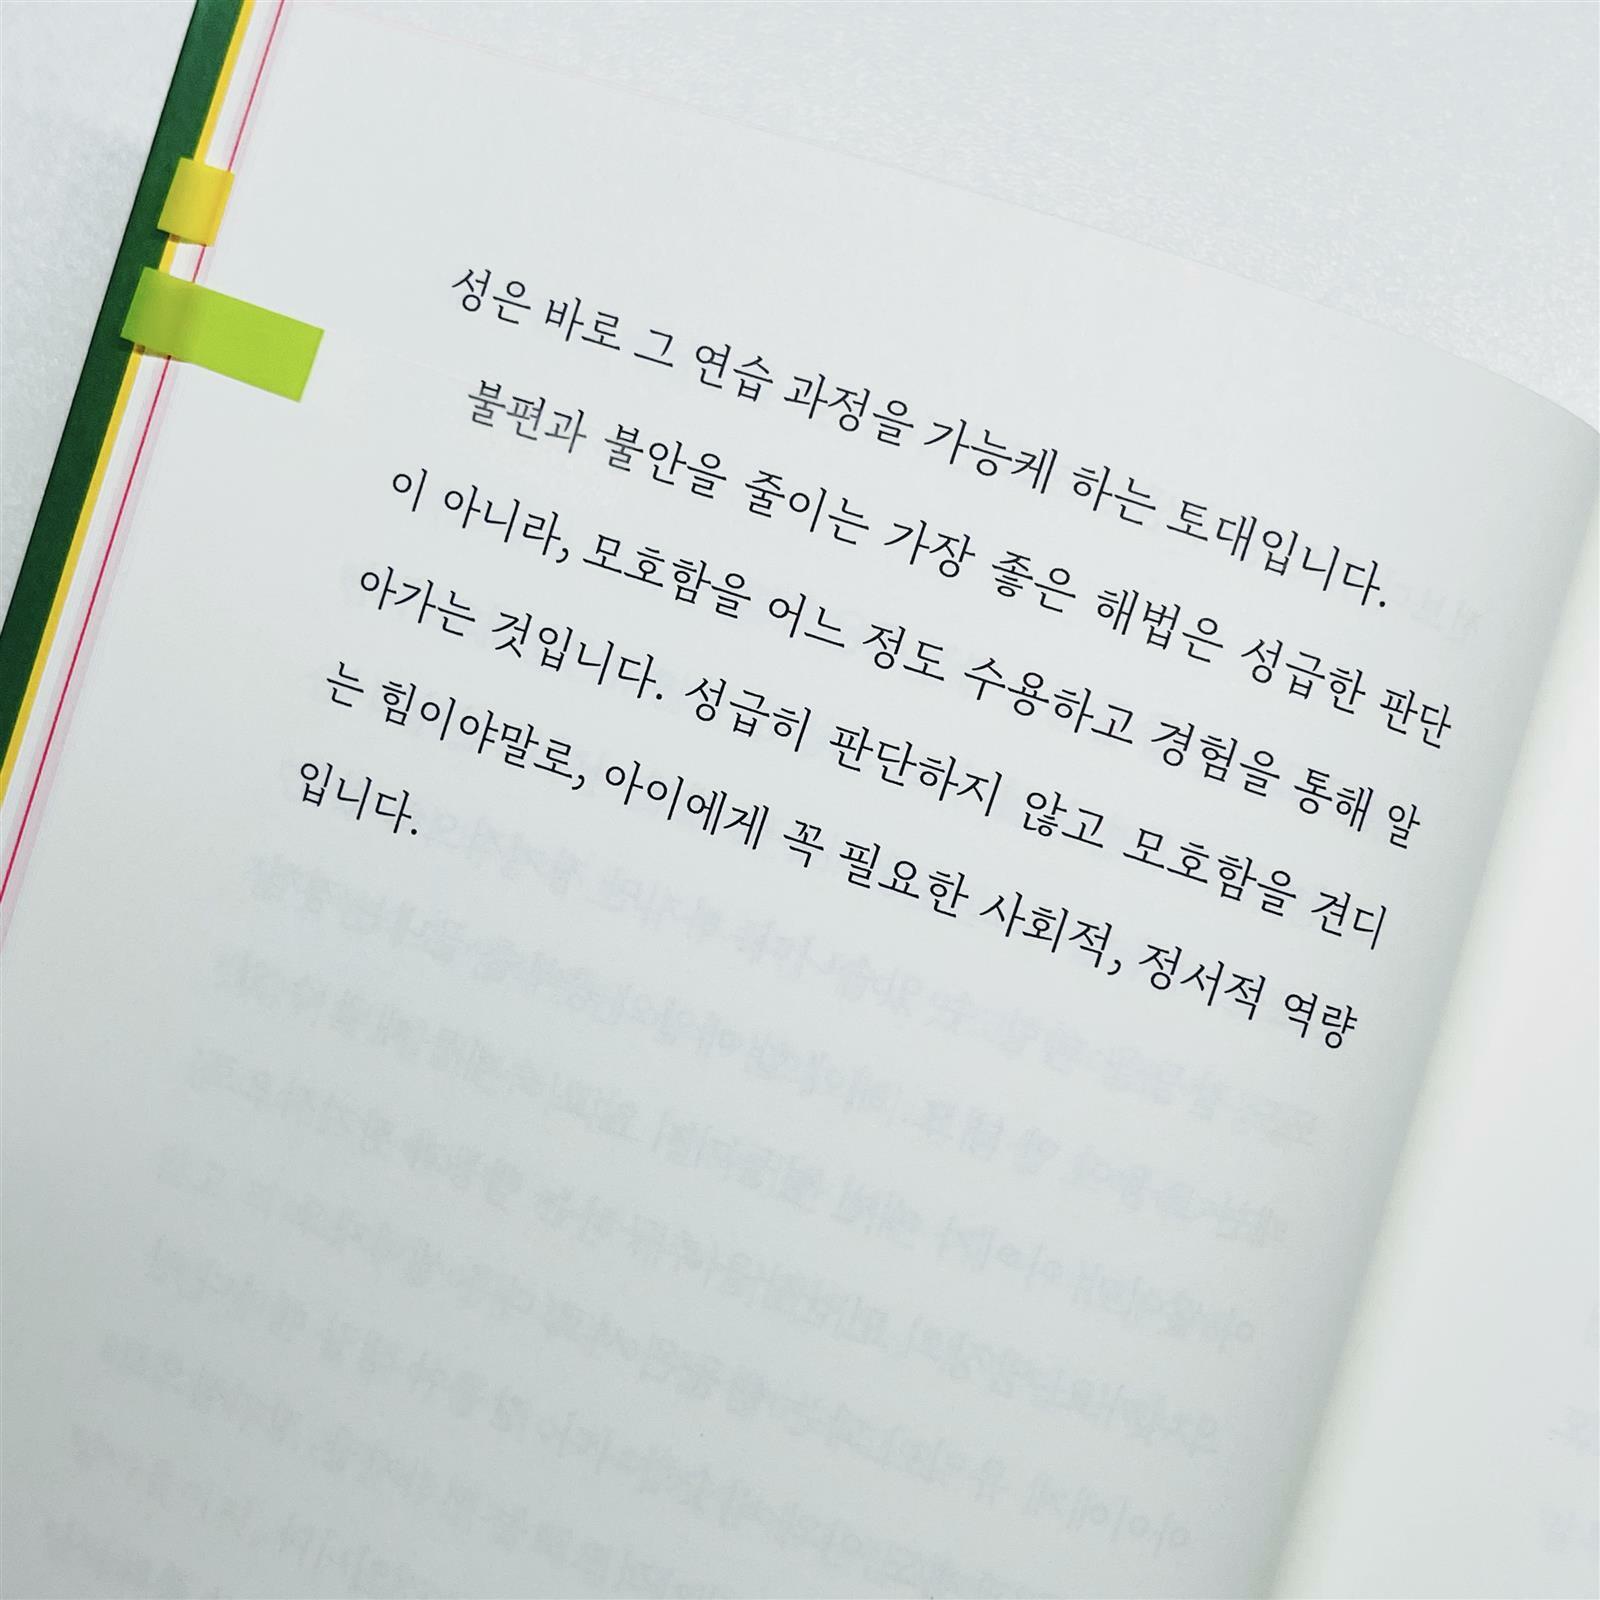 성은 바로 그 연습 과정을 가능케 하는 토대입니다.
불편과 불안을 줄이는 가장 좋은 해법은 성급한 판단
이 아니라, 모호함을 어느 정도 수용하고 경험을 통해 알
아가는 것입니다. 성급히 판단하지 않고 모호함을 견디
는 힘이야말로, 아이에게 꼭 필요한 사회적, 정서적 역량
입니다.